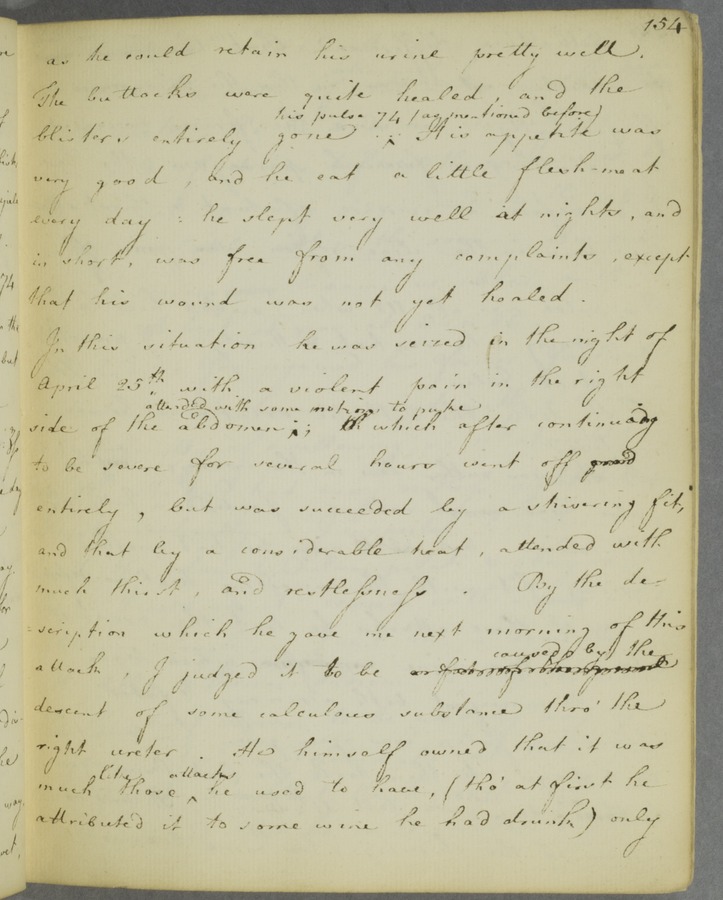 154
as he could retain his urine pretty well.
The buttocks were quite healed, and the
his pulse 74 (as mentioned before)
blisters entirely gone : His appetite was
very good, and he eat a little flesh-meat
every day : he slept very well at nights, and
in short, was free from any complaints, except
that his wound was not yet healed.
In this situation he was seized in the night of
April 25th, with a violent pain in the right
attended with some motions to puke
side of the abdomen; which after continuing
to be severe for several hours went off
entirely, but was succeeded by a shivering fit,
and that by a considerable heat, attended with
much thirst, and restlessness. By the de-
=scription which he gave me next morning of this
caused by the
attack, I judged it to be
descent of some calculous substance thro' the
right ureter. He himself owned that it was
like attacks
much those ^ he used to have, (tho' at first he
attributed it to some wine he had drunk) only